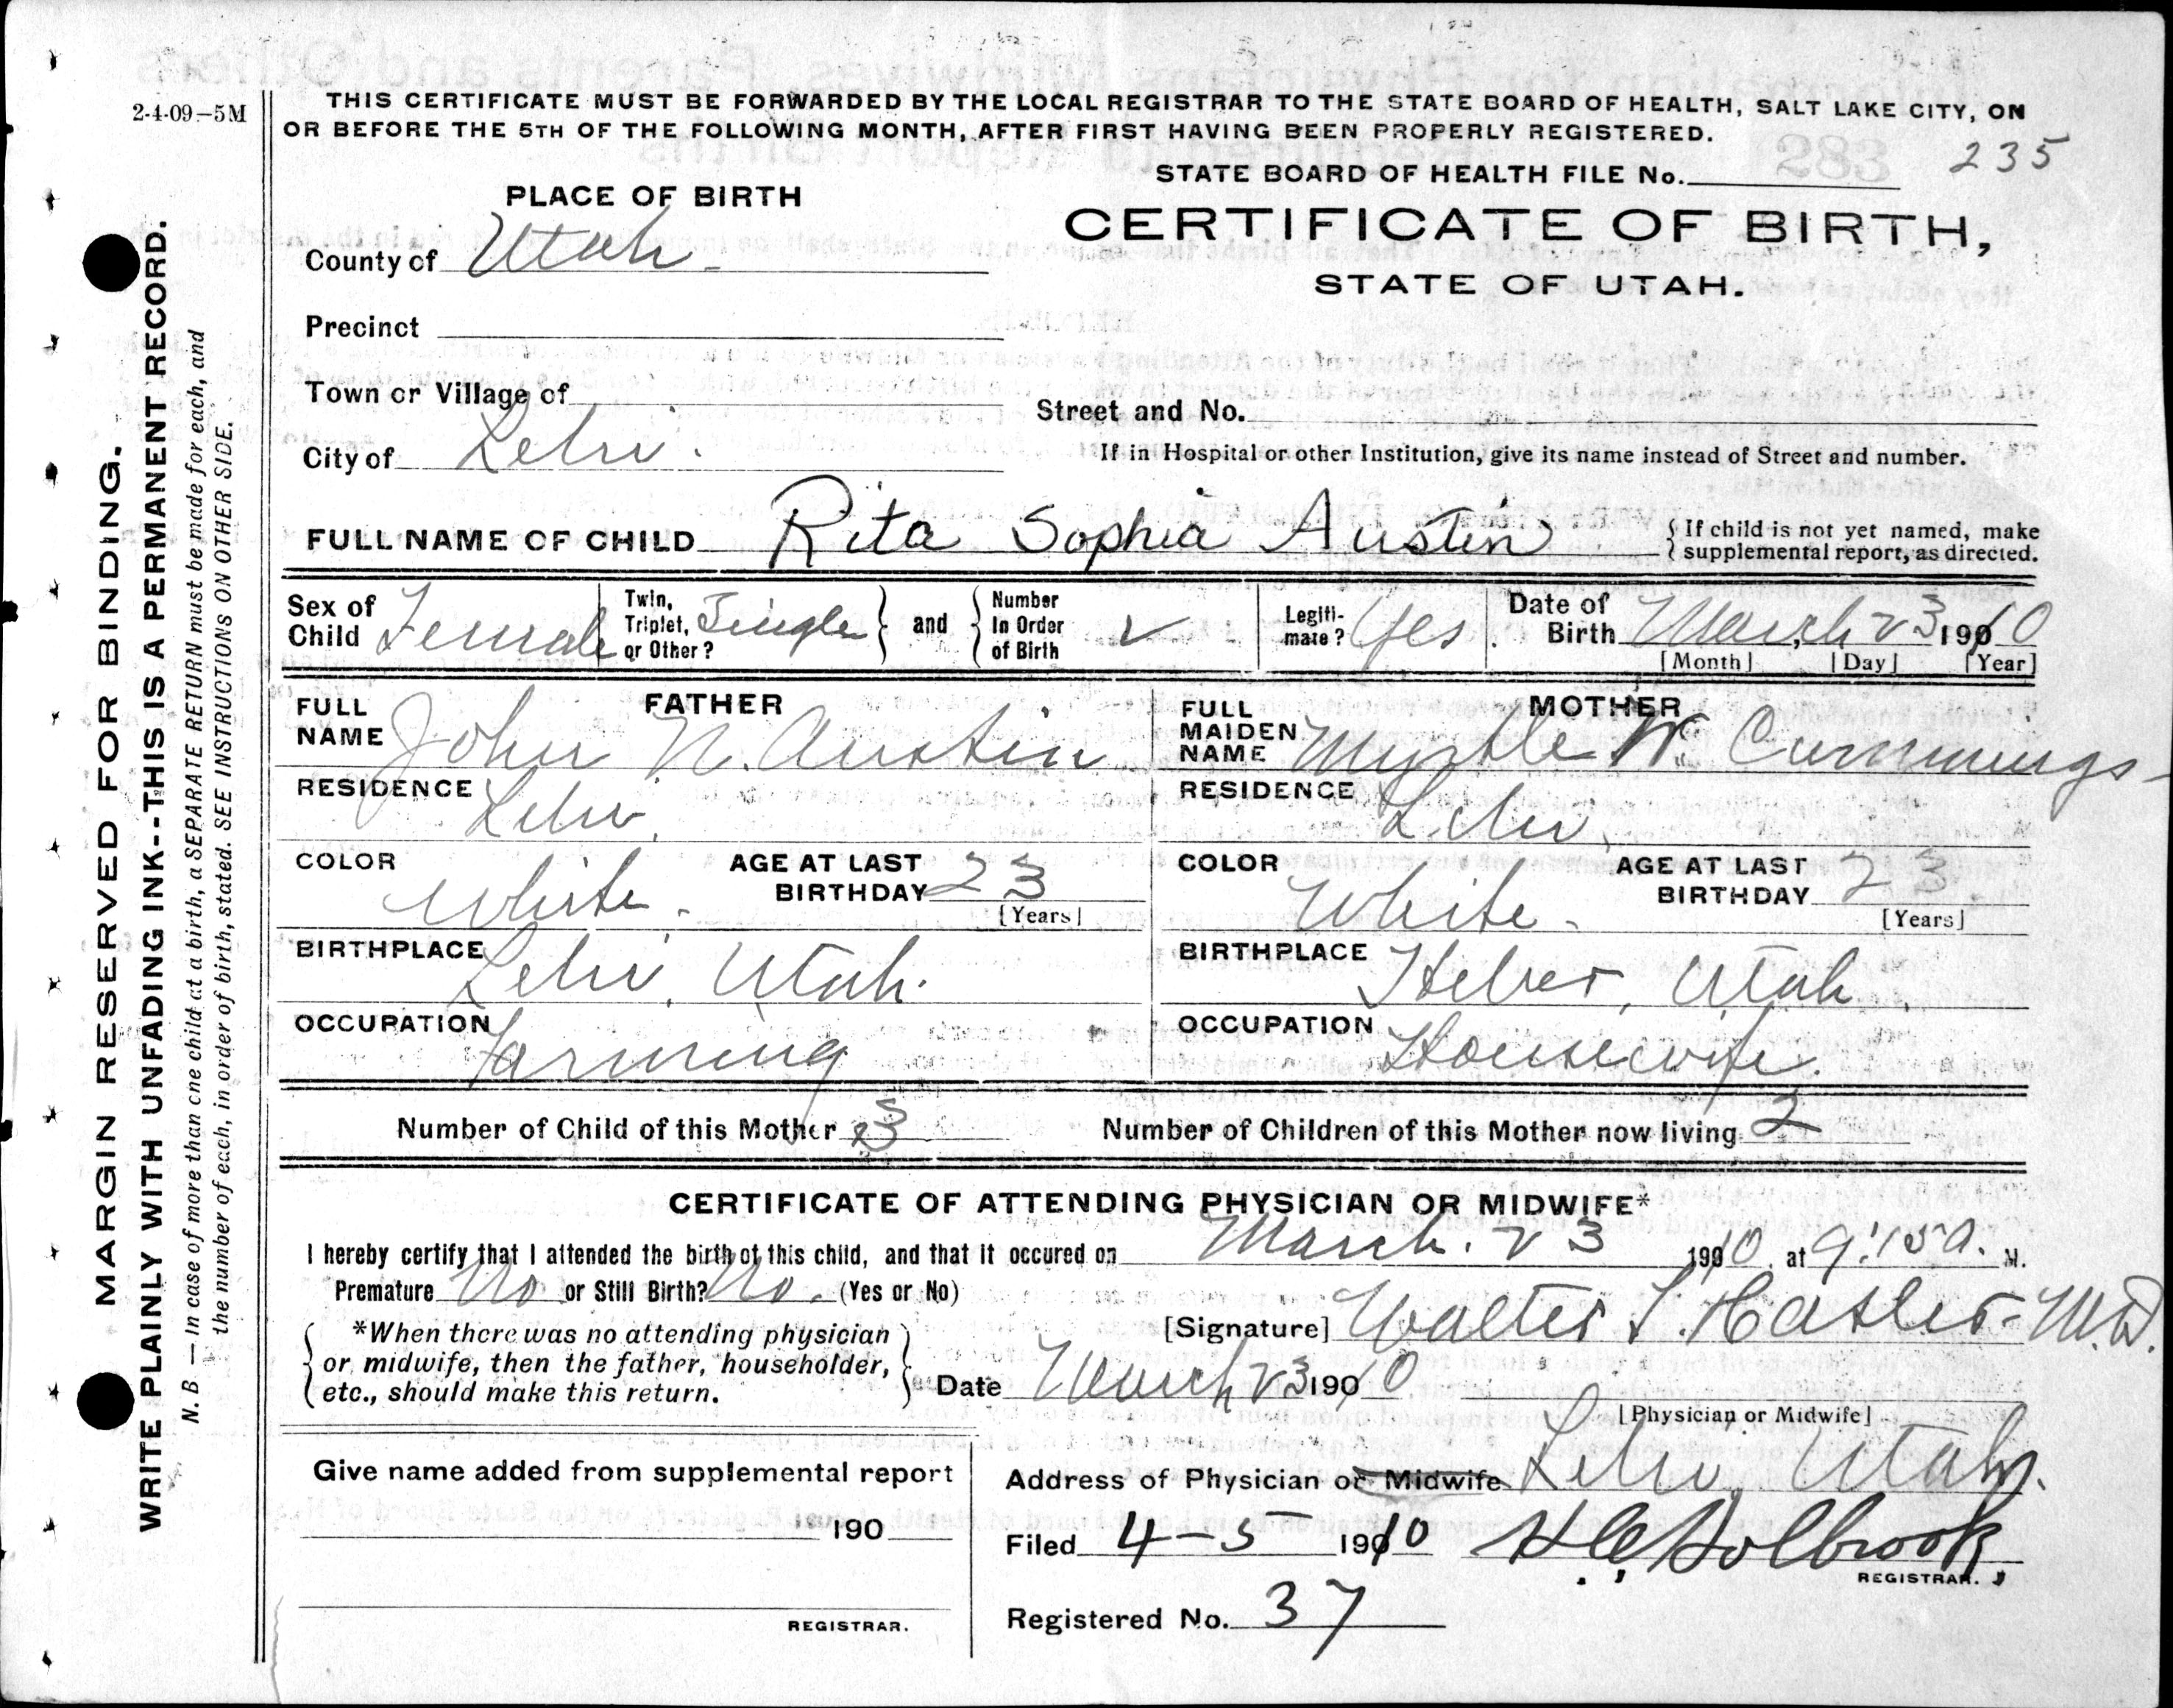 2-4-09.-5M
THIS CERTIFICATE MUST BE FORWARDED BY THE LOCAL REGISTRAR TO THE STATE BOARD OF HEALTH, SALT LAKE CITY, ON
OR BEFORE THE 5TH OF THE FOLLOWING MONTH, AFTER FIRST HAVING BEEN PROPERLY REGISTERED.
235
283
STATE BOARD OF HEALTH FILE No.
CERTIFICATE OF BIRTH,
STATE OF UTAH.
PLACE OF BIRTH
County of Utah
Precinct
Town or Village of
Street and No.
City of Lehi.
If in Hospital or other Institution, give its name instead of Street and number.
FULL NAME OF CHILD Rita Sophia Austin
If child is not yet named, make
supplemental report, as directed.
Sex of Child Female
Twin, Triplet, or Other? Single
and
Number In Order of Birth
Legiti-mate? Yes
Date of Birth March, 23 1910
[Month] [Day] [Year]
FATHER
FULL NAME John N. Austin
RESIDENCE Lehi.
COLOR White.
AGE AT LAST BIRTHDAY 23
[Years]
BIRTHPLACE Lehi, Utah.
OCCUPATION Farming
MOTHER
FULL MAIDEN NAME Myrtle W. Cummings
RESIDENCE Lehi.
COLOR White.
AGE AT LAST BIRTHDAY 23
[Years]
BIRTHPLACE Heber, Utah
OCCUPATION Housewife.
Number of Child of this Mother 3
Number of Children of this Mother now living 2
CERTIFICATE OF ATTENDING PHYSICIAN OR MIDWIFE*
I hereby certify that I attended the birth of this child, and that it occured on March. 23 1910. at 9:15 a. M.
Premature No or Still Birth? No. (Yes or No)
*When there was no attending physician
or midwife, then the father, householder,
etc., should make this return.
[Signature] Walter T. Hasler M.D.
Date March 23 1910
[Physician or Midwife]
Give name added from supplemental report
190
REGISTRAR.
Address of Physician or Midwife Lehi, Utah.
Filed 4-5 1910 Holbrook
REGISTRAR.
Registered No. 37
MARGIN RESERVED FOR BINDING.
WRITE PLAINLY WITH UNFADING INK--THIS IS A PERMANENT RECORD.
N. B. — In case of more than one child at a birth, a SEPARATE RETURN must be made for each, and
the number of each, in order of birth, stated. SEE INSTRUCTIONS ON OTHER SIDE.